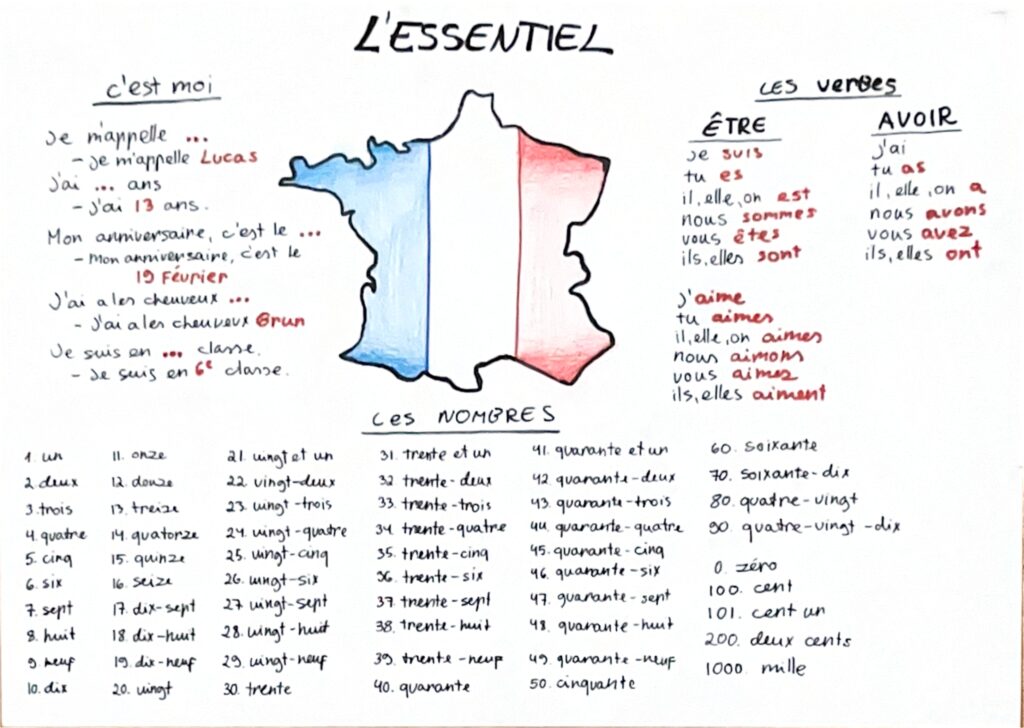 L'ESSENTIEL
c'est moi
Je m'appelle ...
- Je m'appelle Lucas
J'ai ... ans
- J'ai 13 ans.
Mon anniversaire, c'est le ...
- Mon anniversaire, c'est le
19 Février
J'ai a les cheuveux ...
- J'ai a les cheuveux Brun
Je suis en ... classe.
- Je suis en 6e classe.
LES verbes
ÊTRE
je suis
tu es
il, elle, on est
nous sommes
vous êtes
ils, elles sont
AVOIR
j'ai
tu as
il, elle, on a
nous avons
vous avez
ils, elles ont
j'aime
tu aimes
il, elle, on aimes
nous aimons
vous aimez
ils, elles aiment
Les NOMBRES
1. un
2. deux
3. trois
4. quatre
5. cinq
6. six
7. sept
8. huit
9. neuf
10. dix
11. onze
12. douze
13. treize
14. quatorze
15. quinze
16. seize
17. dix-sept
18. dix-huit
19. dix-neuf
20. vingt
21. vingt et un
22. vingt-deux
23. vingt-trois
24. vingt-quatre
25. vingt-cinq
26. vingt-six
27. vingt-sept
28. vingt-huit
29. vingt-neuf
30. trente
31. trente et un
32 trente-deux
33. trente-trois
34 trente-quatre
35. trente-cinq
36. trente-six
37. trente-sept
38. trente-huit
39. trente-neuf
40. quarante
41. quarante et un
42 quarante-deux
43. quarante-trois
44. quarante-quatre
45. quarante-cinq
46. quarante-six
47. quarante-sept
48. quarante-huit
49. quarante-neuf
50. cinquante
60. soixante
70. soixante-dix
80. quatre-vingt
90. quatre-vingt-dix
0. zéro
100. cent
101. cent un
200. deux cents
1000. mille